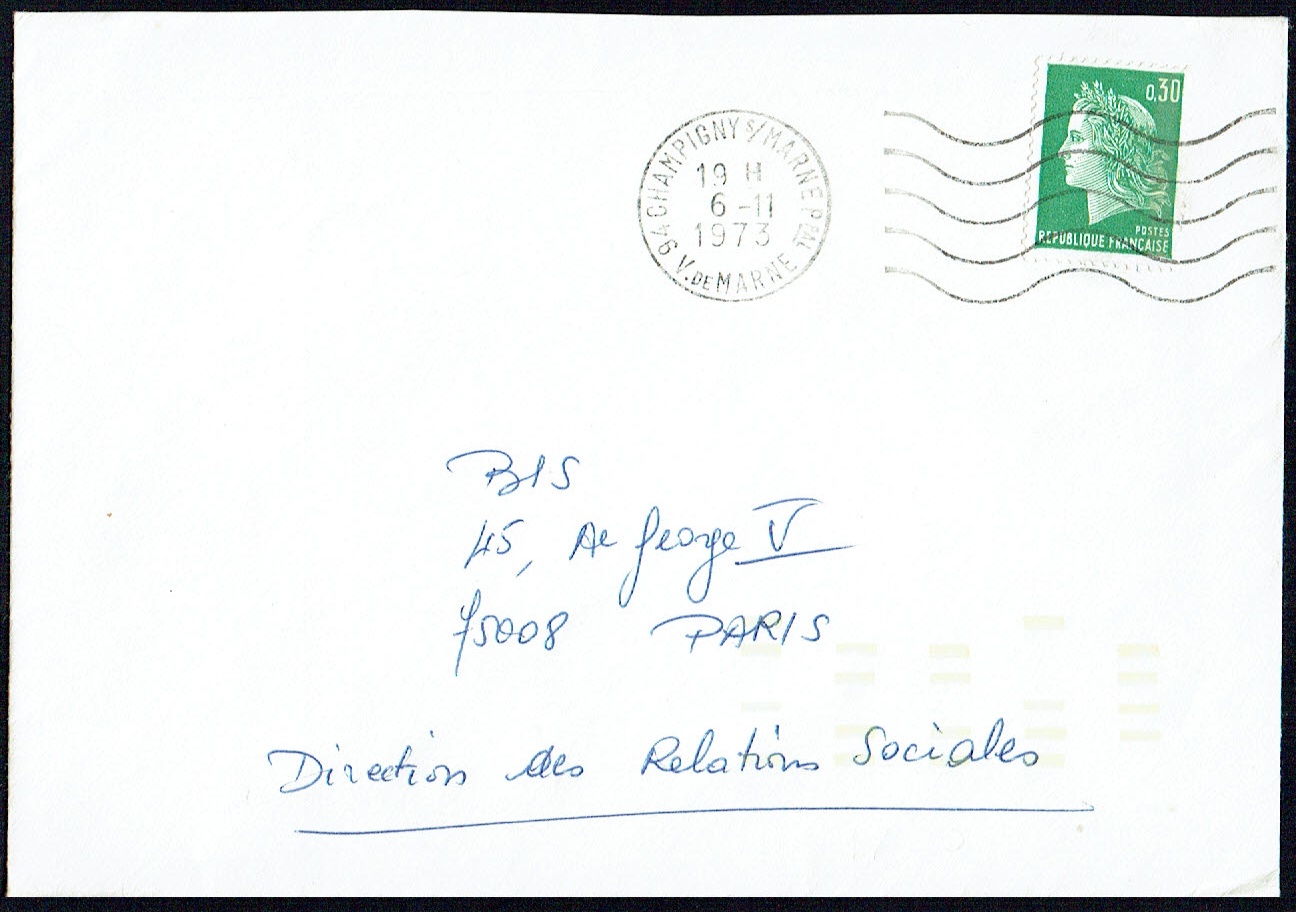 94 CHAMPIGNY S/MARNE PPAL
19 H
6 -11
1973
V. DE MARNE
0,30
POSTES
REPUBLIQUE FRANCAISE
BIS
45, Ae George V
75008 PARIS
Direction des Relations Sociales